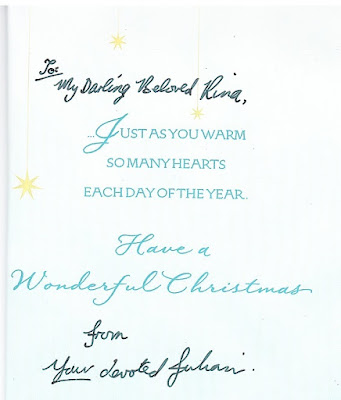 To:
My Darling Beloved Rina,
...JUST AS YOU WARM
SO MANY HEARTS
EACH DAY OF THE YEAR.
Have a
Wonderful Christmas
from
Your devoted Julian.